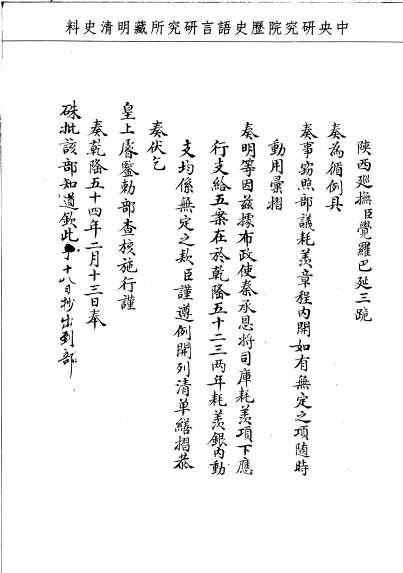 中央研究院歷史語言研究所藏明清史料
陝西廵撫臣覺羅巴延三跪
奏為循例具
奏事竊照部議耗羨章程內開如有無定之項随時
動用彙摺
奏明等因兹據布政使秦承恩將司庫耗羨項下應
行支給五案在於乾隆五十二三兩年耗羨銀內動
支均係無定之款臣謹遵例開列清单繕摺恭
奏伏乞
皇上睿鑒勅部查核施行謹
奏乾隆五十四年二月十三日奉
硃批該部知道欽此于十八日抄出到部